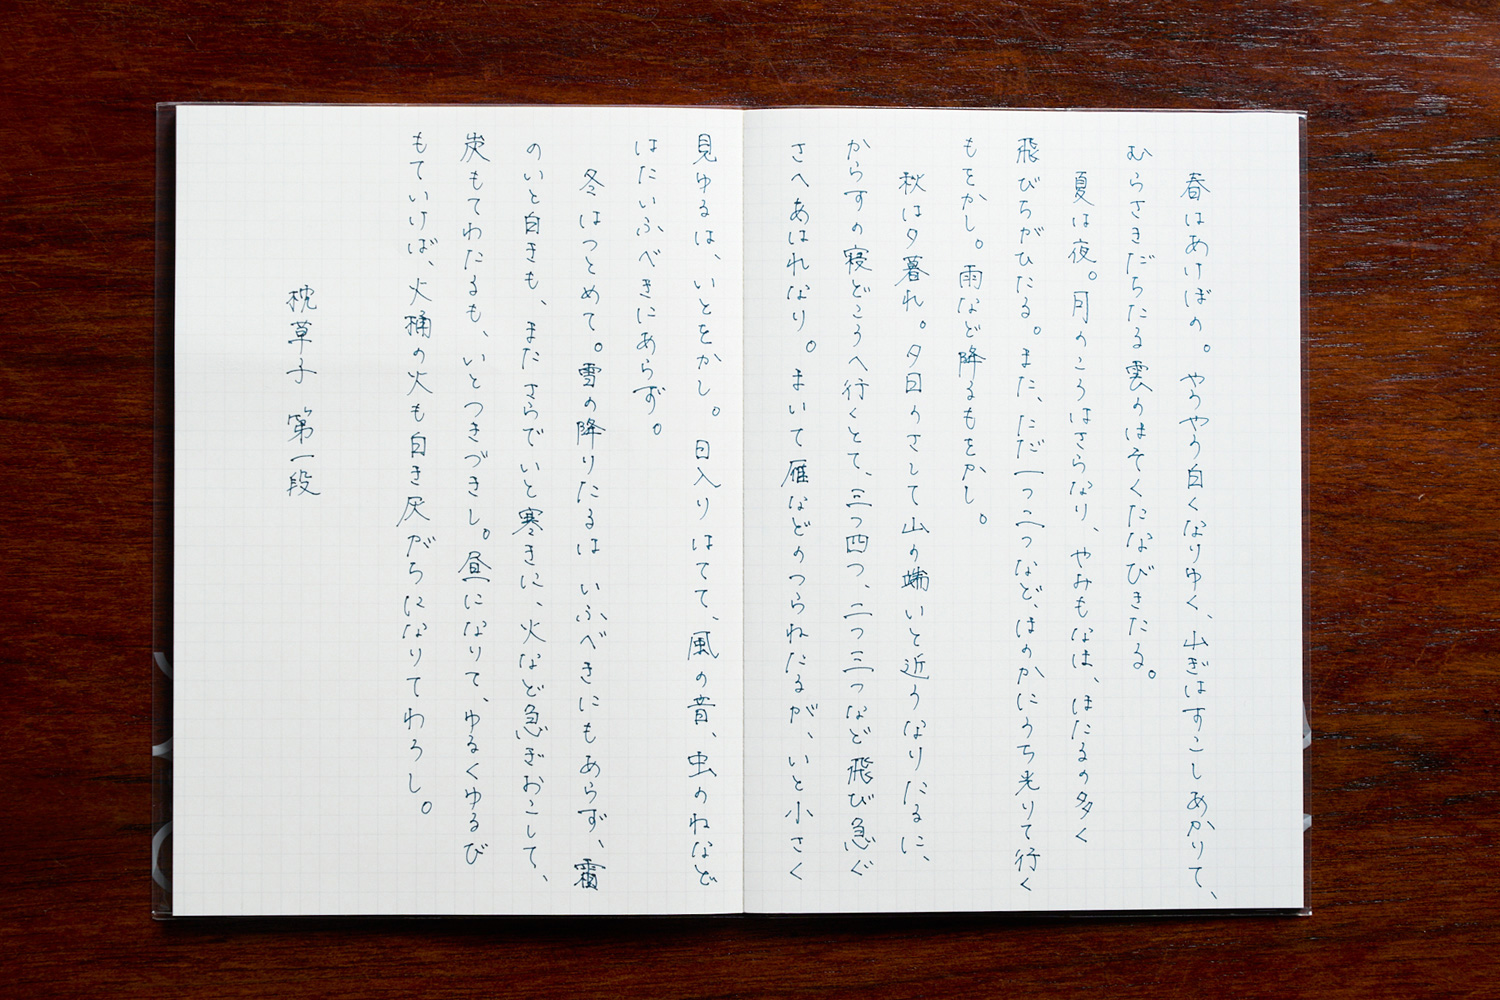 春はあけぼの。やうやう白くなりゆく、山ぎはすこしあかりて、
むらさきだちたる雲のほそくたなびきたる。
夏は夜。月のころはさらなり、やみもなほ、ほたるの多く
飛びちがひたる。また、ただ一つ二つなど、ほのかにうち光りて行く
もをかし。雨など降るもをかし。
秋は夕暮れ。夕日のさして山の端いと近うなりたるに、
からすの寝どころへ行くとて、三つ四つ、二つ三つなど飛び急ぐ
さへあはれなり。まいて雁などのつらねたるが、いと小さく
見ゆるは、いとをかし。日入りはてて、風の音、虫のねなど
はたいふべきにあらず。
冬はつとめて。雪の降りたるはいふべきにもあらず、霜
のいと白きも、またさらでいと寒きに、火など急ぎおこして、
炭もてわたるも、いとつきづきし。昼になりて、ゆるくゆるび
もていけば、火桶の火も白き灰がちになりてわろし。
枕草子 第一段